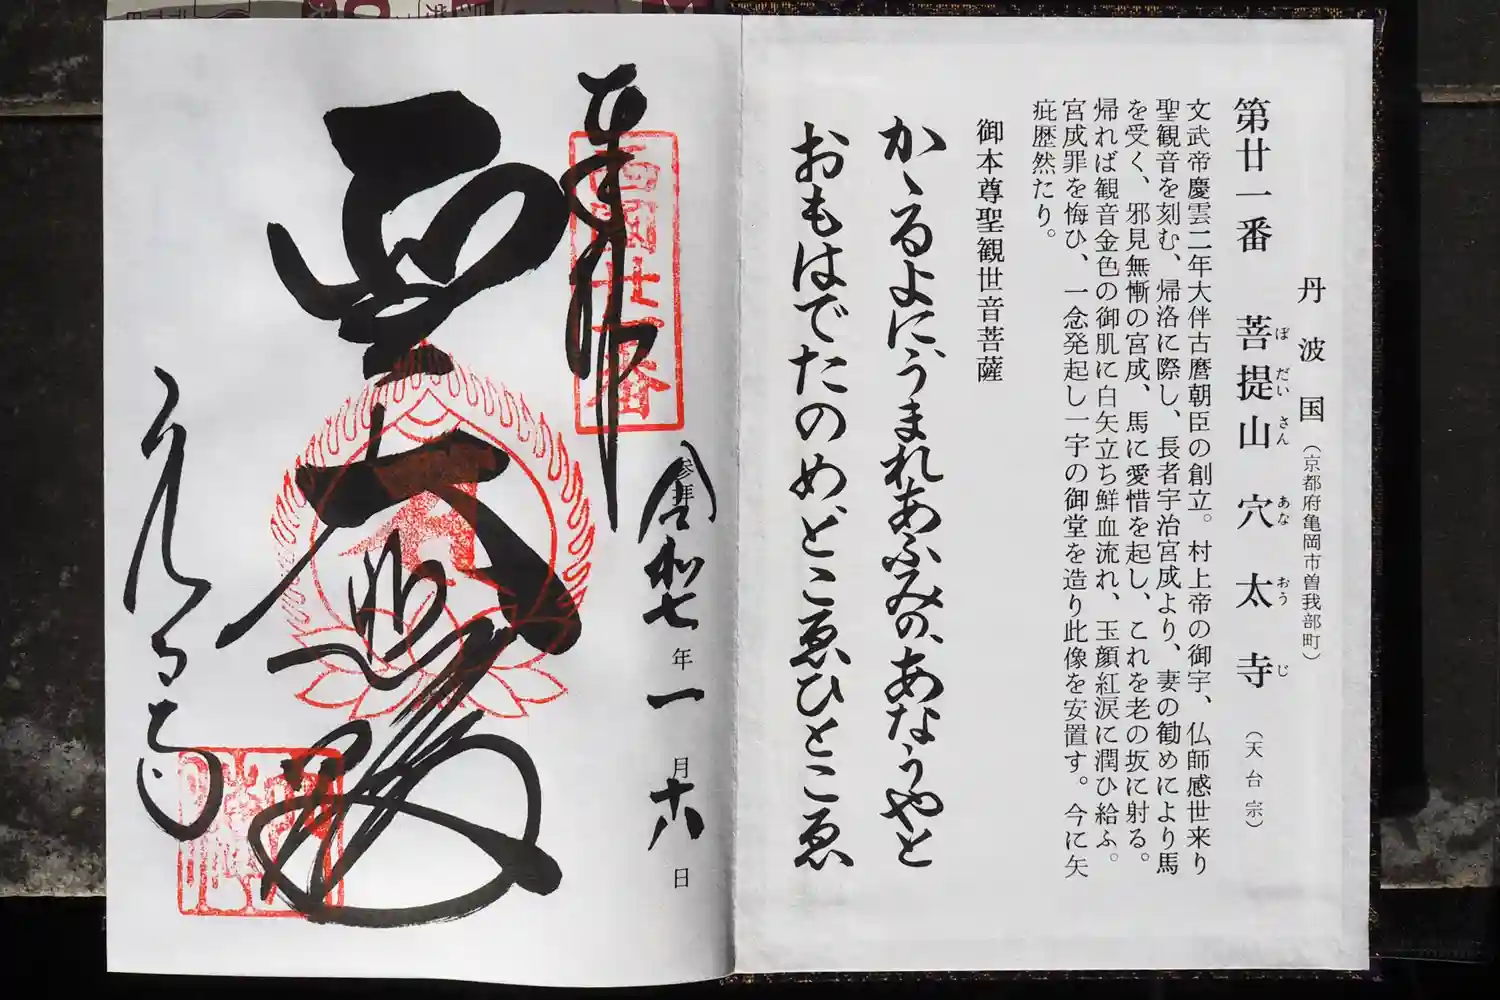 丹波国（京都府亀岡市曽我部町）
第廿一番 菩提山 穴太寺（天台宗）
ぼだいさん あなおうじ
文武帝慶雲二年大伴古麿朝臣の創立。村上帝の御宇、仏師感世来り
聖観音を刻む、帰洛に際し、長者宇治宮成より、妻の勧めにより馬
を受く、邪見無慚の宮成、馬に愛惜を起し、これを老の坂に射る。
帰れば観音金色の御肌に白矢立ち鮮血流れ、玉顔紅涙に潤ひ給ふ。
宮成罪を悔ひ、一念発起し一宇の御堂を造り此像を安置す。今に矢
疵歴然たり。
御本尊聖観世音菩薩
かゝるよに、うまれあふみの、あなうやと
おもはでたのめ、どこゑひとこゑ
奉拝
西国廿一番
参拝
令和七年一月十八日
聖大悲殿
穴太寺